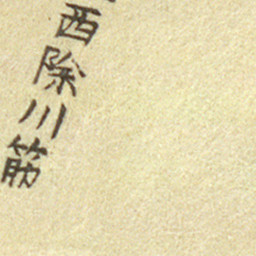 西除川筋